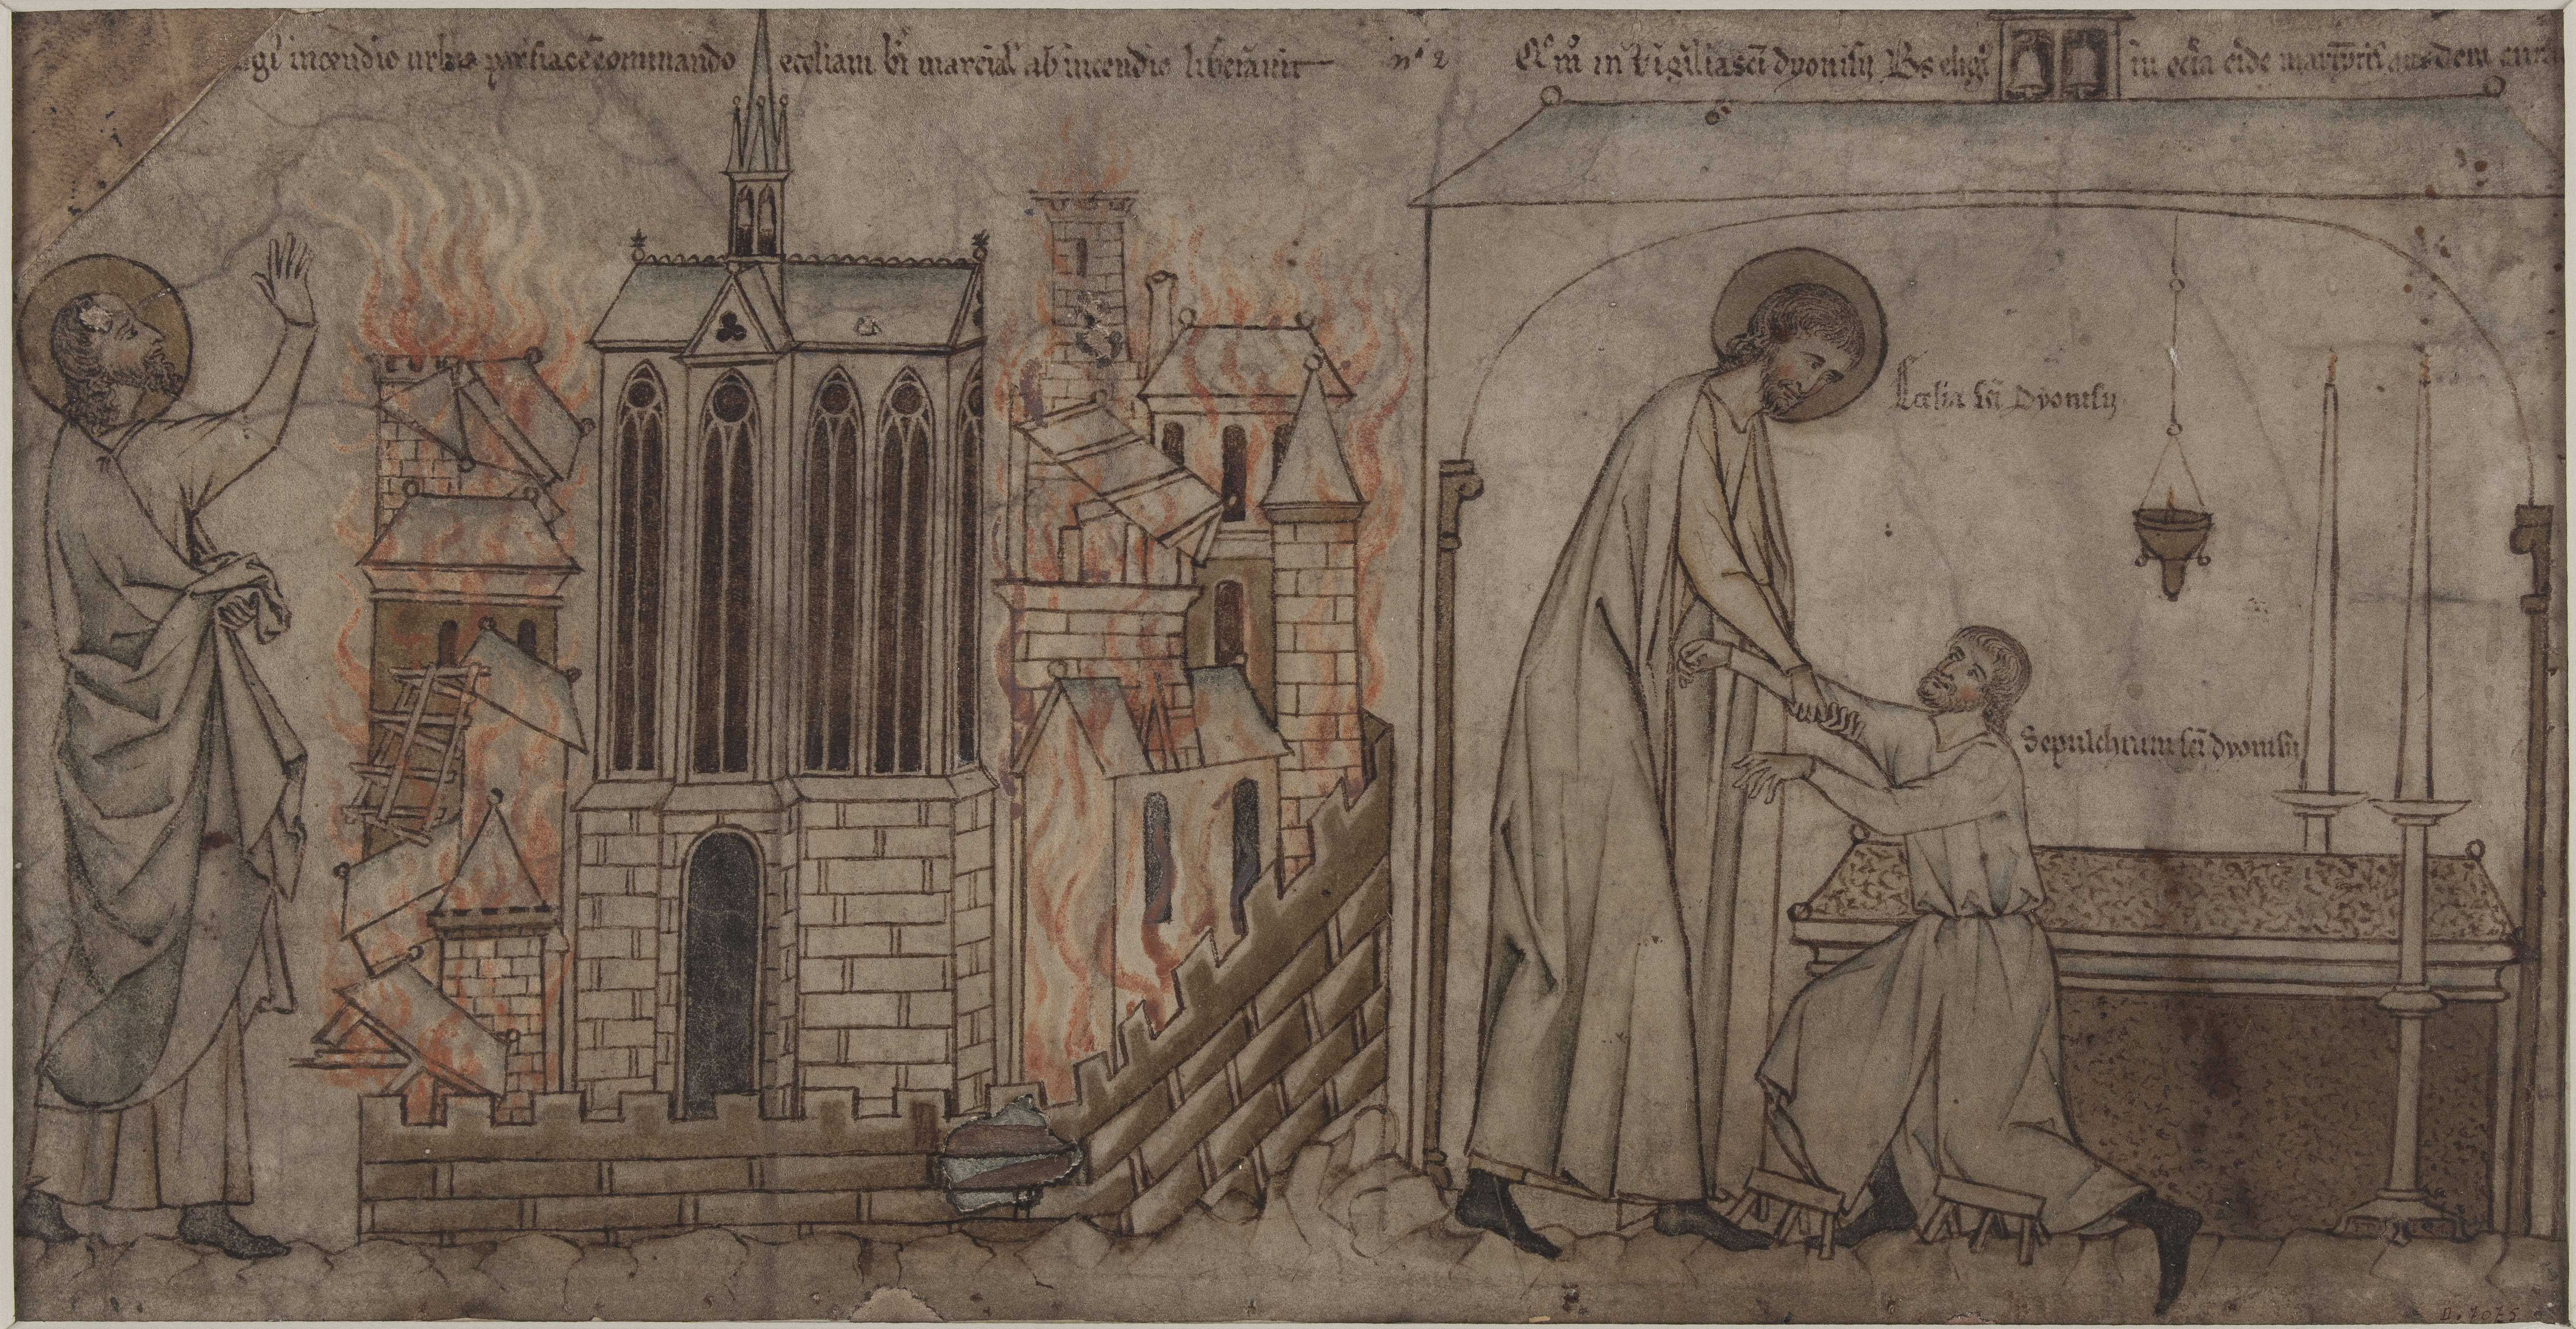 incendio urbis parisiace comminando ecc̄liam bī marcial' ab incendio liberauit
nº 2
Qm̊ in vigilia scī dyonisii Bs eligi' in ecc̄a eiꝰde martyris
Ecc̄lia scī Dyonisii
Sepulchrum scī dyonisii
D. 7075